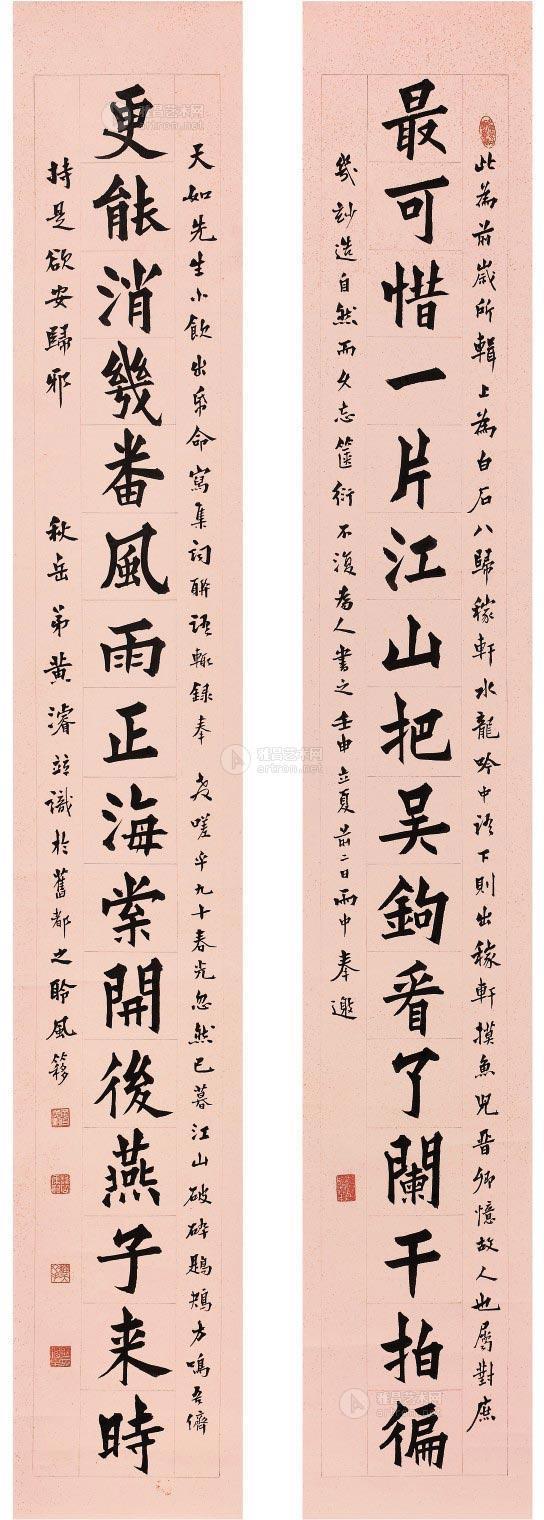 此為前歲所輯上為白石八歸稼軒水龍吟中語下則出稼軒摸魚兒晉卿憶故人也屬對庶
最可惜一片江山把吳鉤看了闌干拍徧
幾妙造自然而久忘篋衍不復為人書之壬申立夏前二日雨中奉邀
天如先生小飲出帋命寫集詞聯語輒録奉教嗟乎九十春光忽然已暮江山破碎鶗鴂方鳴吾儕
更能消幾番風雨正海棠開後燕子来時
持是欲安歸邪
秋岳弟黃濬竝識於舊都之聆風簃